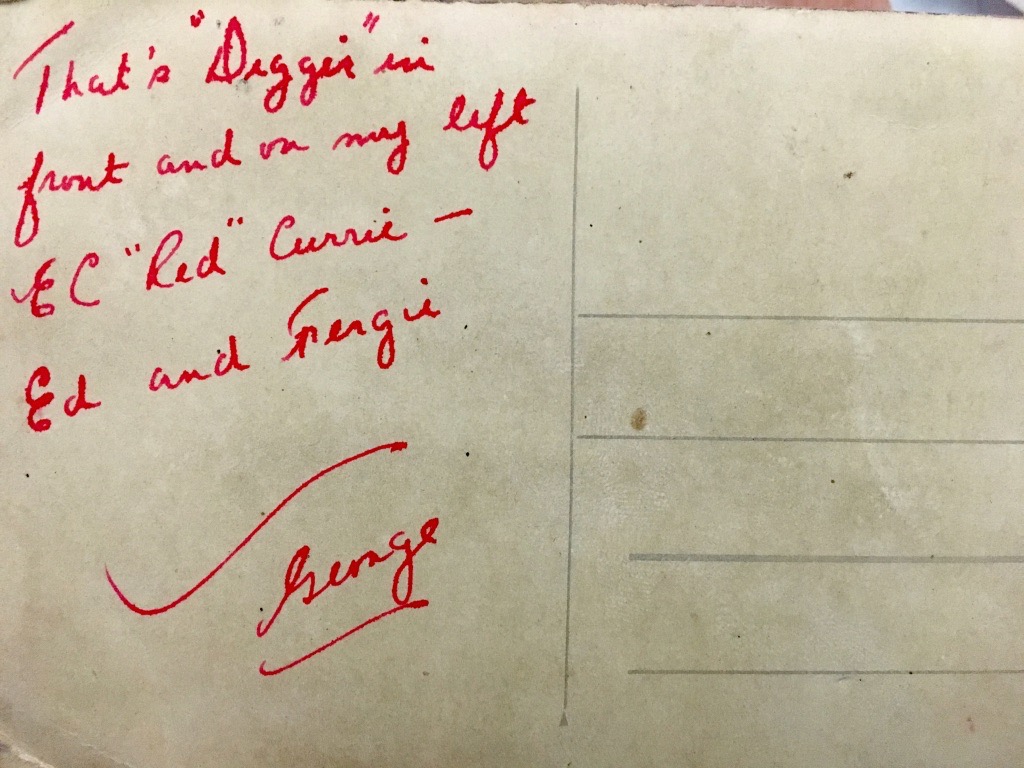 That's "Digger" in
front and on my left
EC "Red" Currie —
Ed and Fergie
George